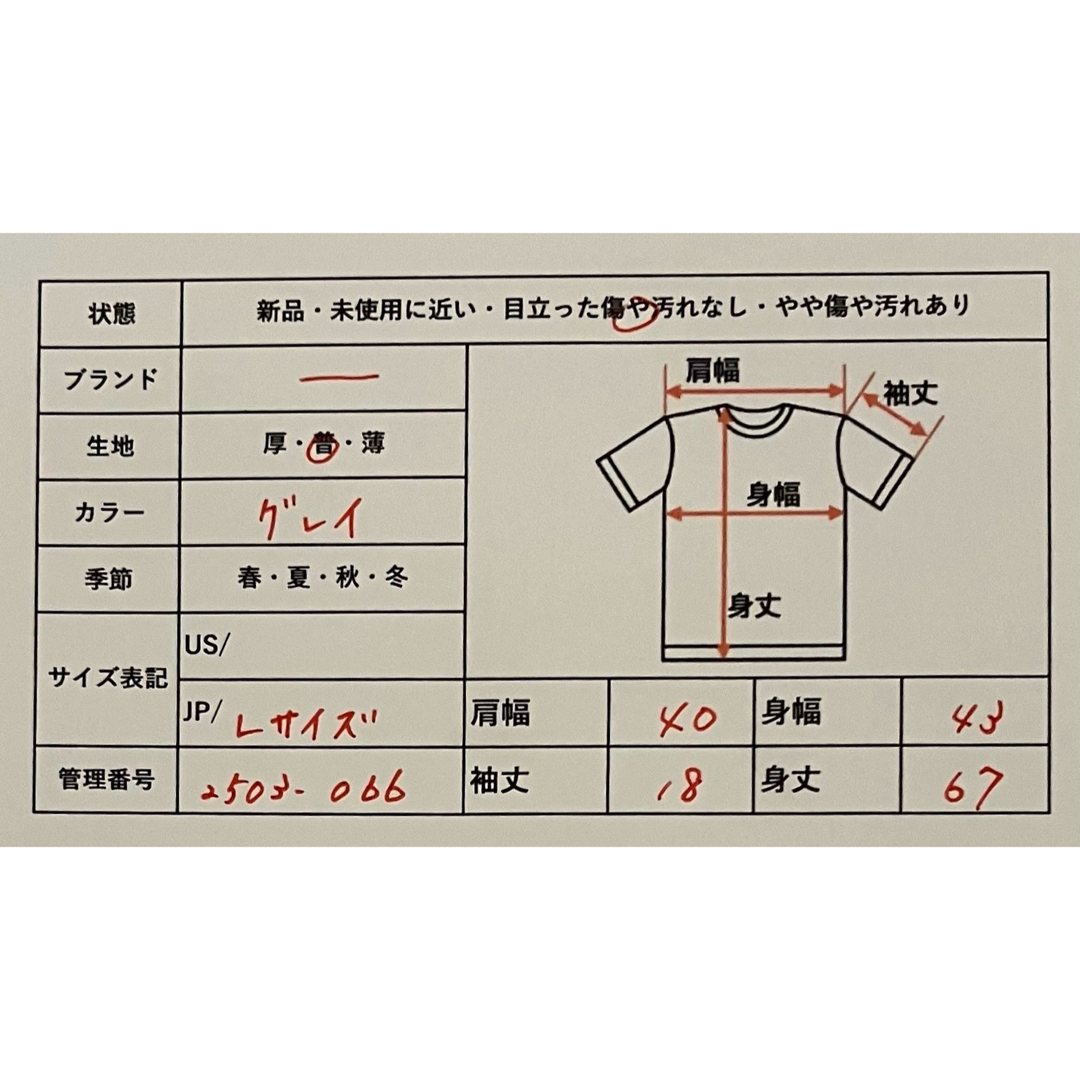 状態 新品・未使用に近い・目立った傷や汚れなし・やや傷や汚れあり
ブランド ー
生地 厚・普・薄
カラー グレイ
季節 春・夏・秋・冬
サイズ表記 US/
JP/ Lサイズ
管理番号 2503-066
肩幅
袖丈
身幅
身丈
肩幅 40 身幅 43
袖丈 18 身丈 67